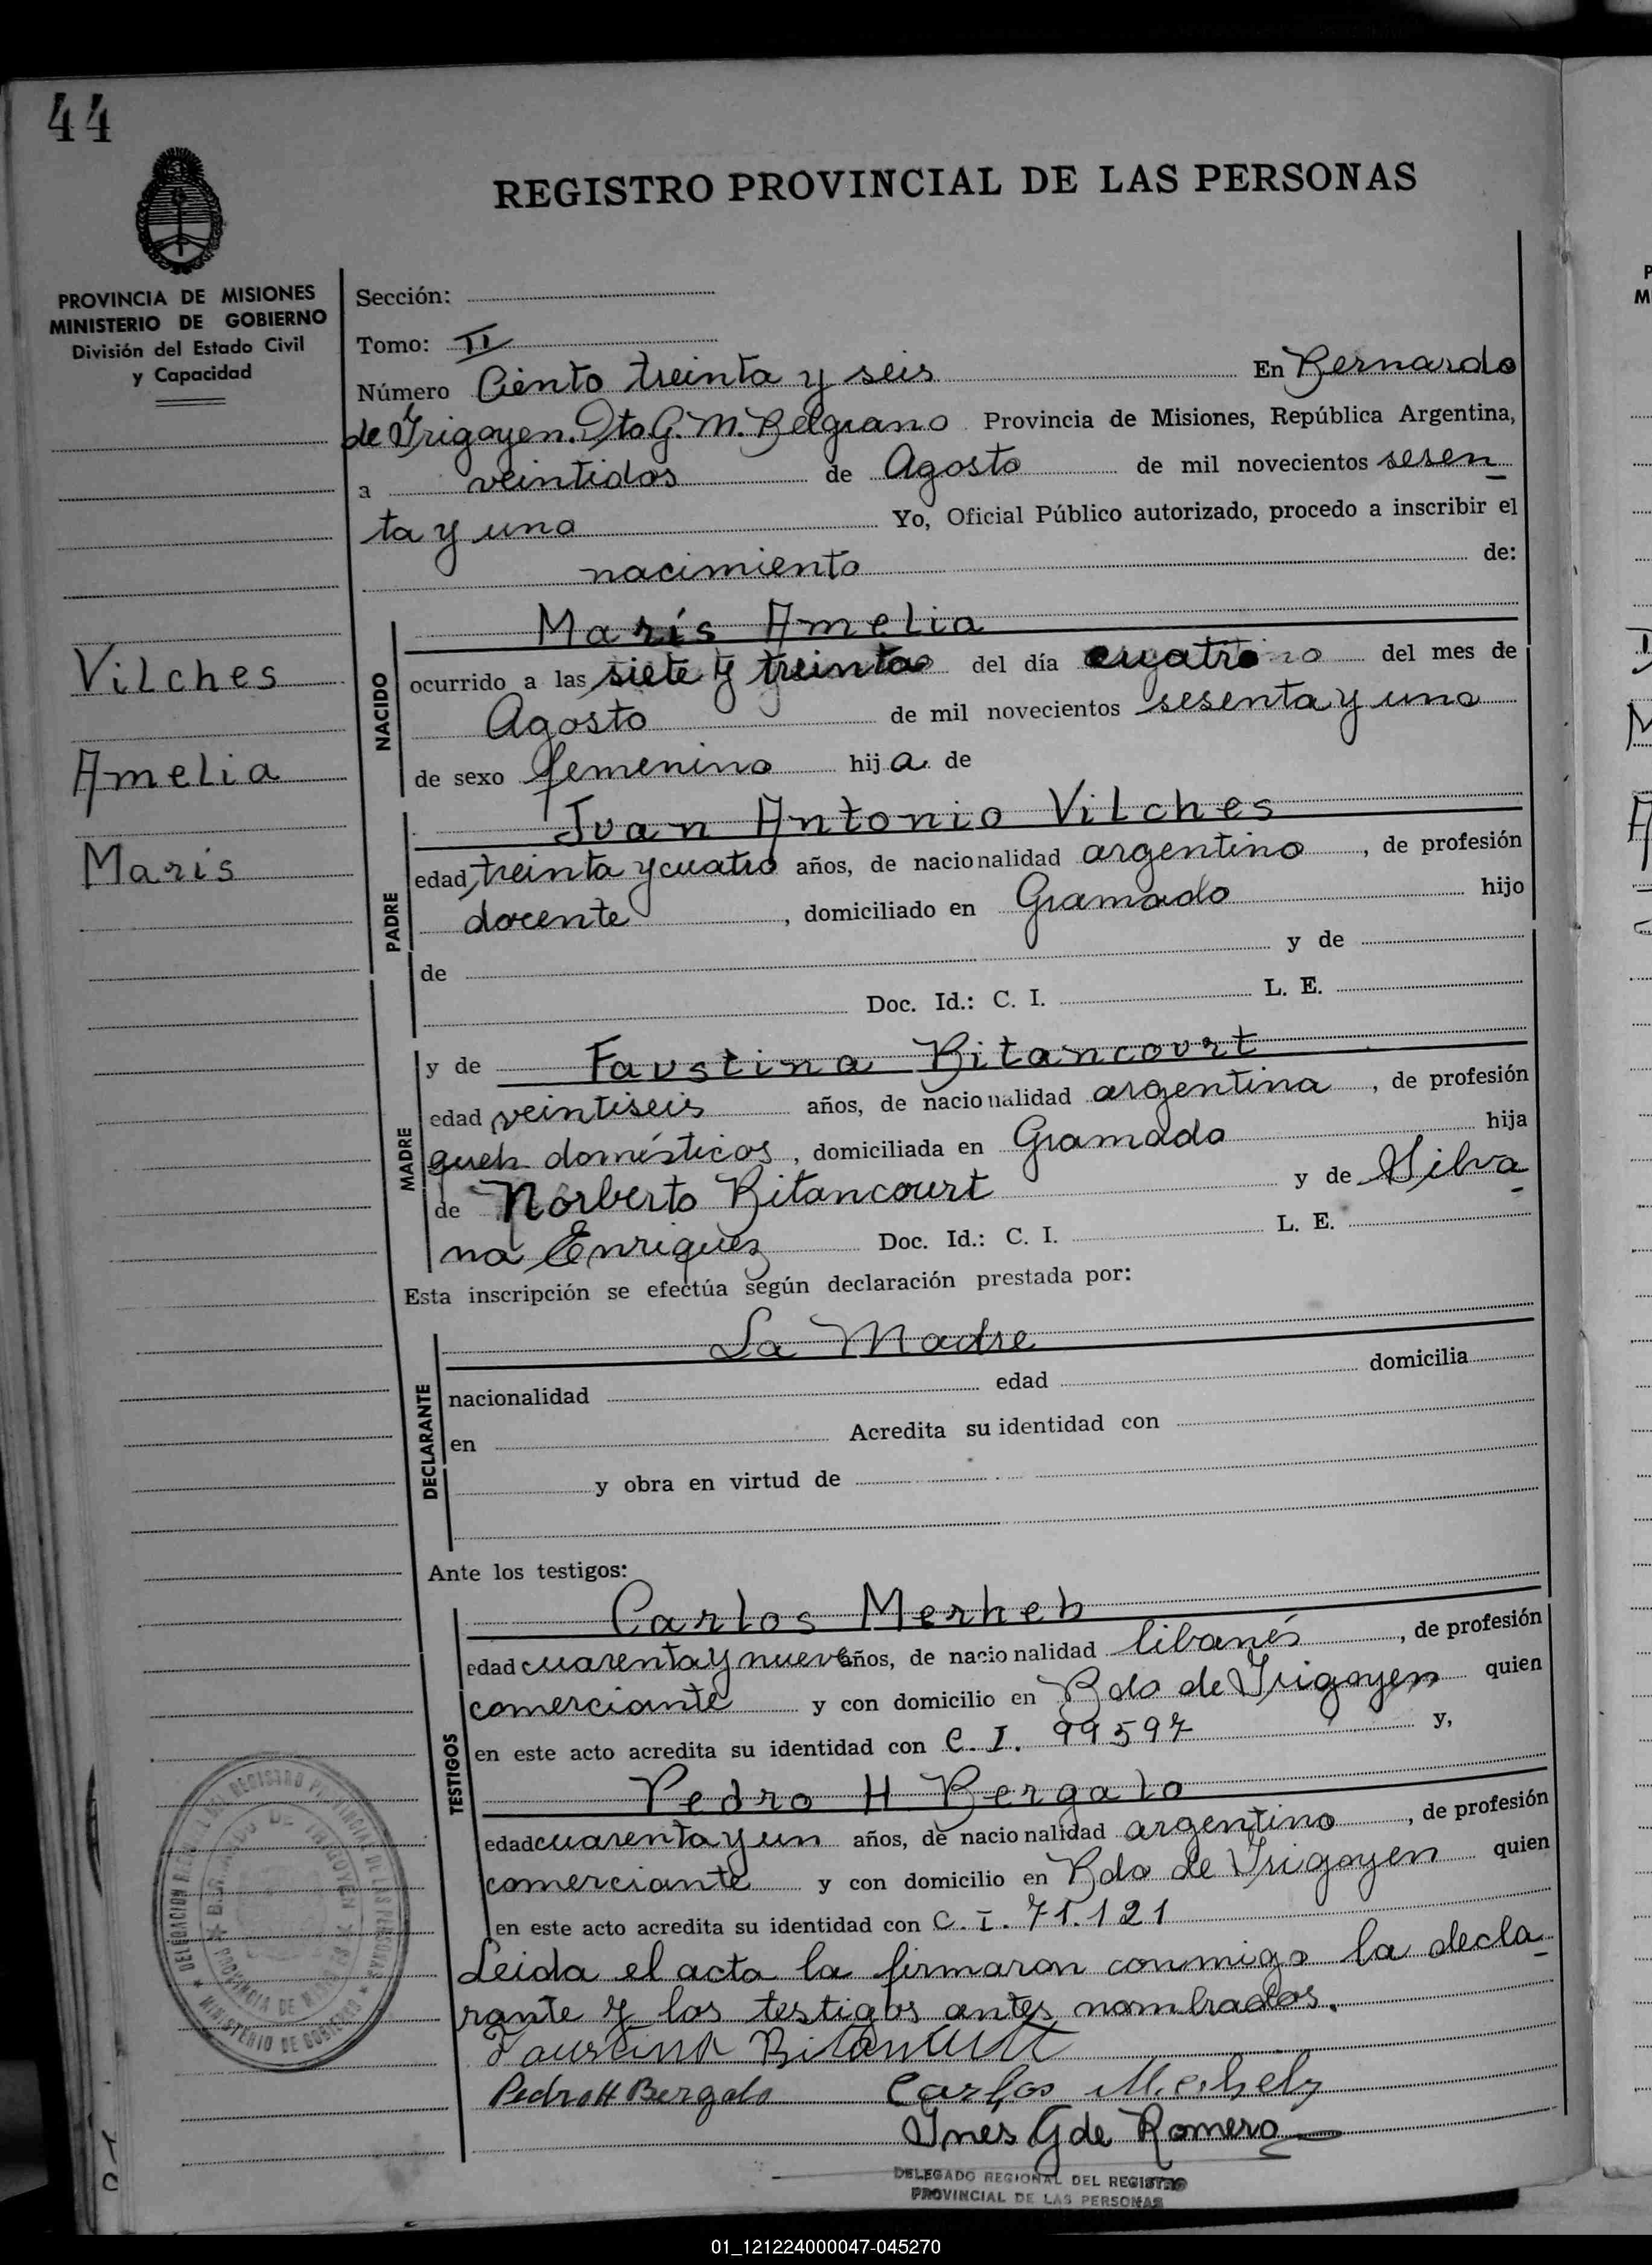 44
REGISTRO PROVINCIAL DE LAS PERSONAS
PROVINCIA DE MISIONES
MINISTERIO DE GOBIERNO
División del Estado Civil
y Capacidad
Sección:
Tomo: II
Número Ciento treinta y seis En Bernardo
de Yrigoyen. Dto G. M. Belgrano Provincia de Misiones, República Argentina,
a veintidos de Agosto de mil novecientos sesen
ta y uno Yo, Oficial Público autorizado, procedo a inscribir el
nacimiento de:
Vilches
Amelia
Maris
NACIDO
Maris Amelia
ocurrido a las siete y treinta del día cuatro del mes de
Agosto de mil novecientos sesenta y uno
de sexo femenino hija de
PADRE
Juan Antonio Vilches
edad treinta y cuatro años, de nacionalidad argentino, de profesión
docente, domiciliado en Gramado hijo
de y de
Doc. Id.: C. I. L. E.
MADRE
y de Faustina Bitancourt
edad veintiseis años, de nacionalidad argentina, de profesión
queh domésticos, domiciliada en Gramado hija
de Norberto Bitancourt y de Silva
na Enriquez Doc. Id.: C. I. L. E.
Esta inscripción se efectúa según declaración prestada por:
DECLARANTE
La Madre
nacionalidad edad domicilia
en Acredita su identidad con
y obra en virtud de
Ante los testigos:
TESTIGOS
Carlos Merheb
edad cuarenta y nueve años, de nacionalidad libanés, de profesión
comerciante y con domicilio en Bdo de Yrigoyen quien
en este acto acredita su identidad con C. I. 99597 y,
Pedro H Bergalo
edad cuarenta y un años, de nacionalidad argentino, de profesión
comerciante y con domicilio en Bdo de Yrigoyen quien
en este acto acredita su identidad con C. I. 71.121
Leida el acta la firmaron conmigo la decla
rante y los testigos antes nombrados.
Faustina Bitancurt
Pedro H Bergalo Carlos Merheb
Ynes G de Romero
DELEGADO REGIONAL DEL REGISTRO
PROVINCIAL DE LAS PERSONAS
DELEGACION REGIONAL DEL REGISTRO PROVINCIAL DE LAS PERSONAS
MINISTERIO DE GOBIERNO
BERNARDO DE YRIGOYEN
PROVINCIA DE MISIONES
01_121224000047-045270